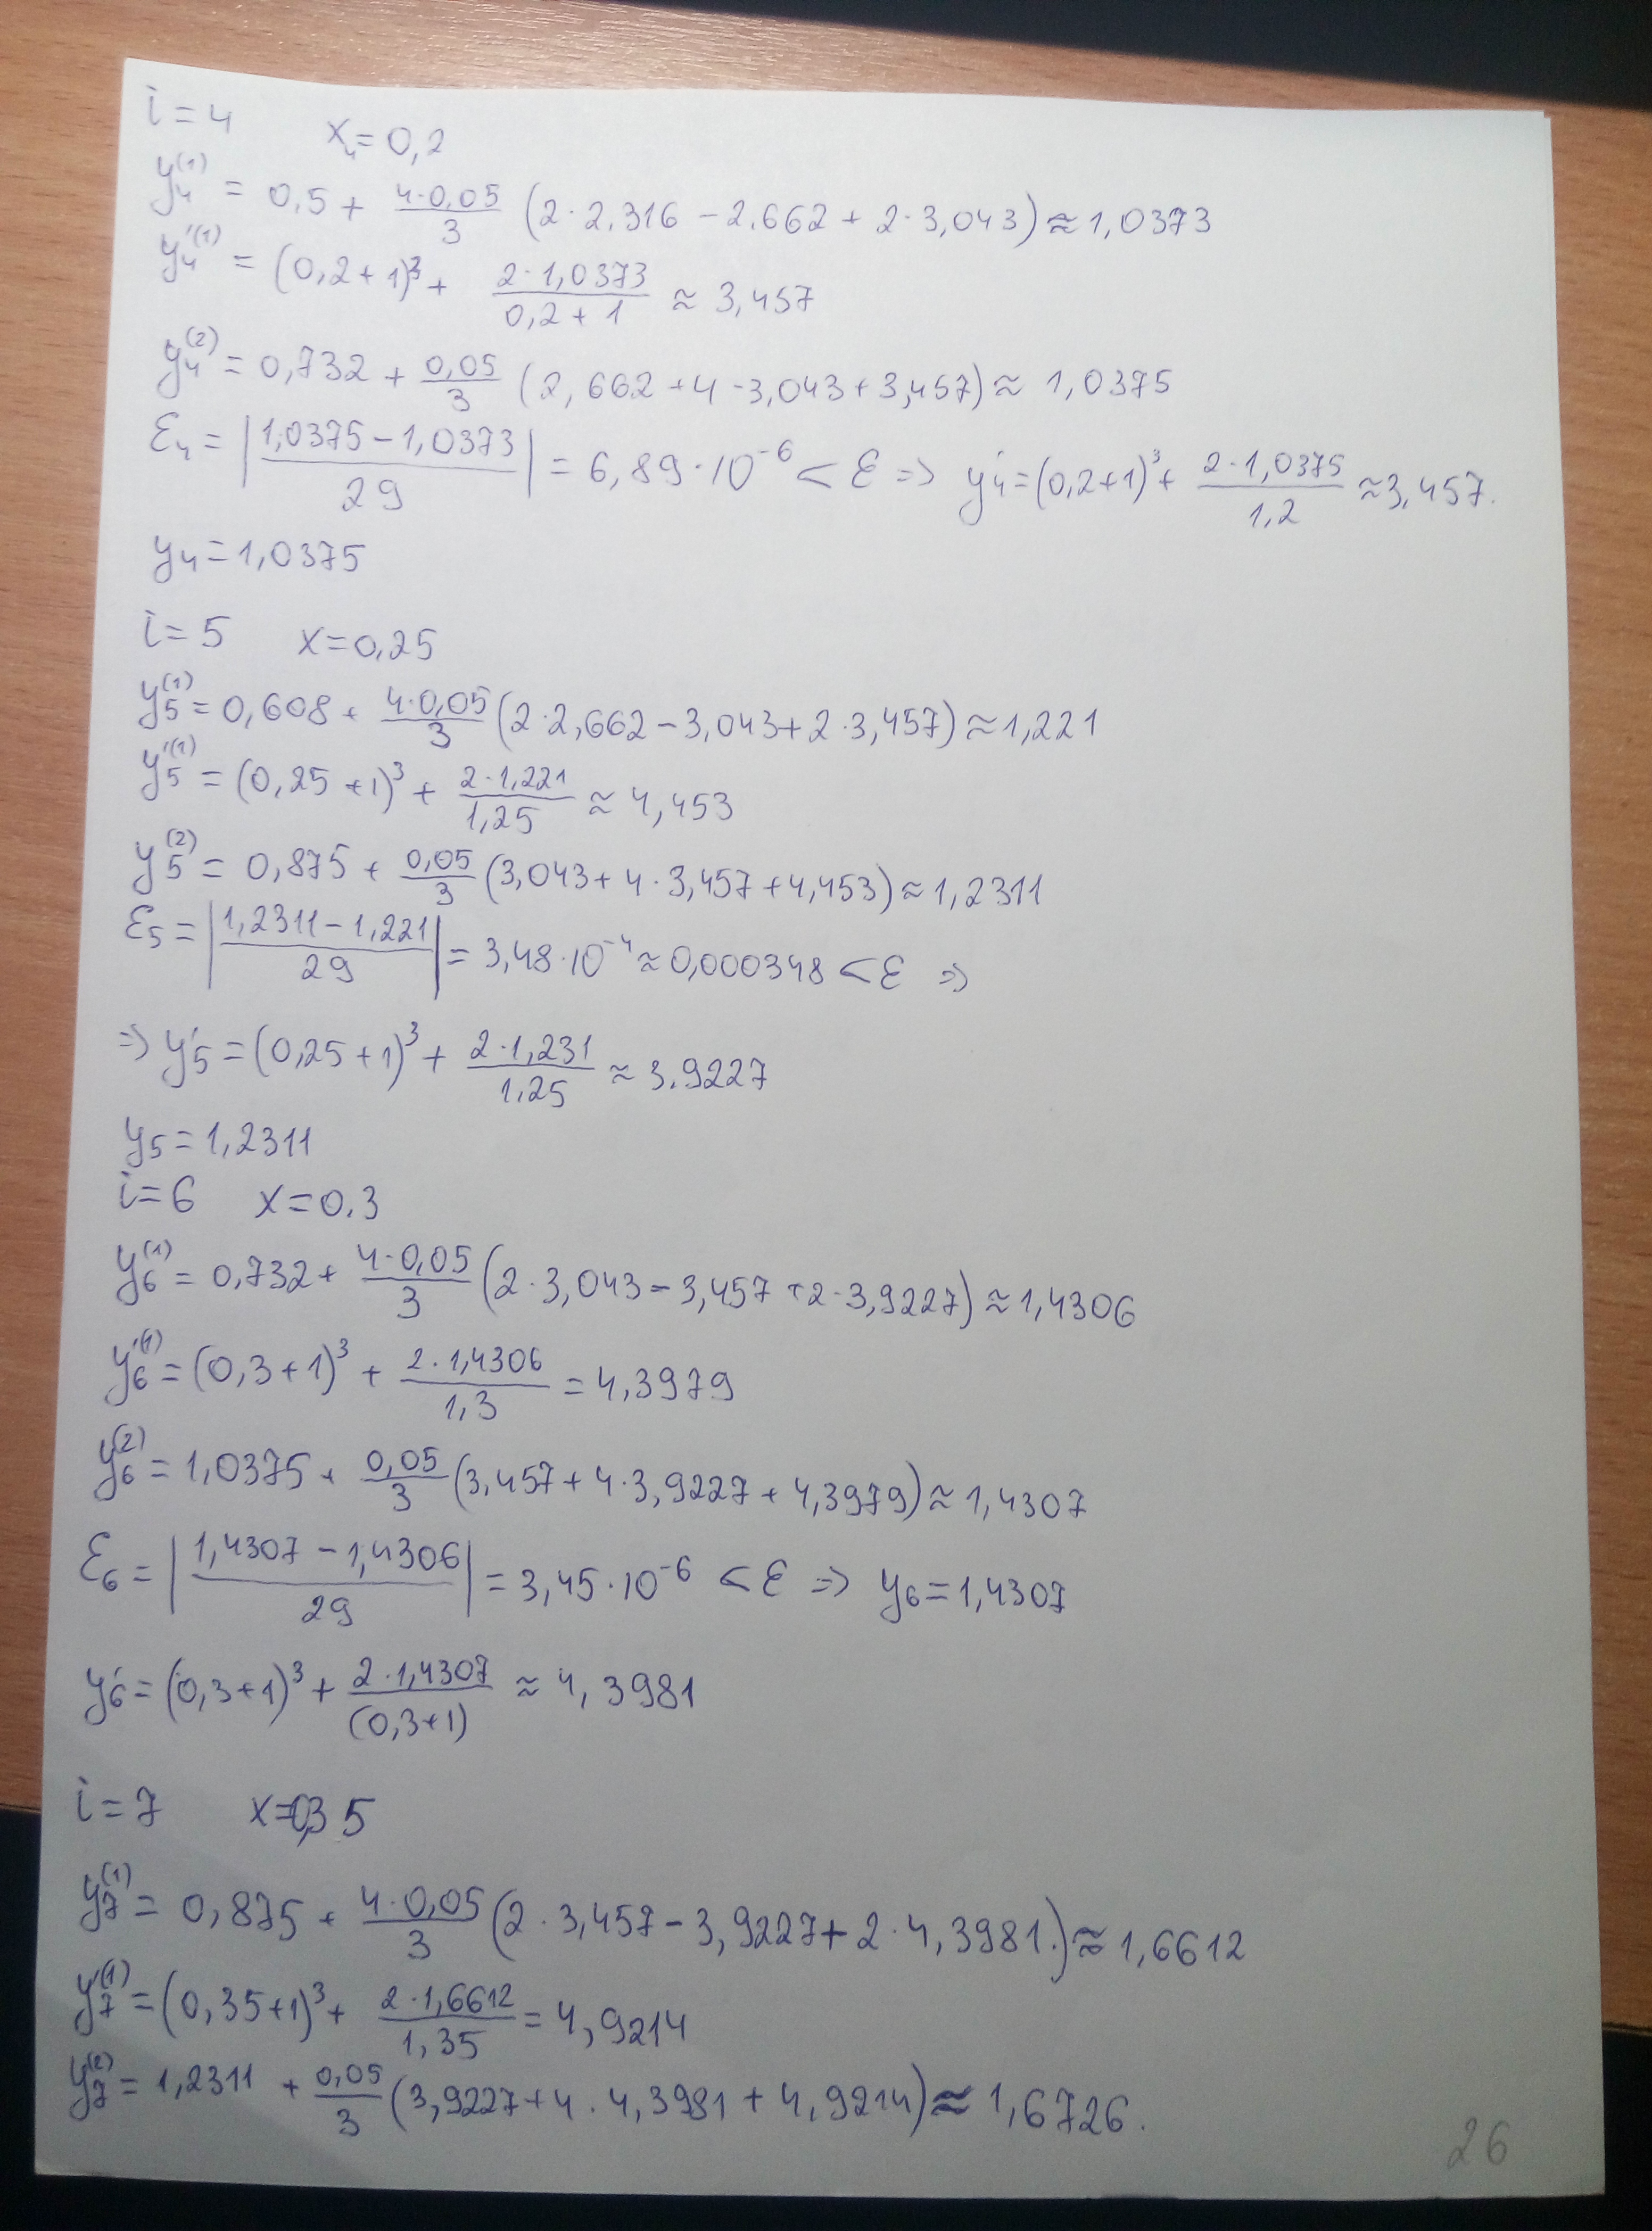 i = 4 x₄ = 0,2
y₄⁽¹⁾ = 0,5 + (4·0,05)/3 (2·2,316 − 2.662 + 2·3,043) ≈ 1,0373
y₄'⁽¹⁾ = (0,2+1)³ + (2·1,0373)/(0,2+1) ≈ 3,457
y₄⁽²⁾ = 0,732 + 0,05/3 (2,662 + 4·3,043 + 3,457) ≈ 1,0375
ε₄ = |(1,0375 − 1,0373)/29| = 6,89·10⁻⁶ < ε ⇒ y₄' = (0,2+1)³ + (2·1,0375)/1,2 ≈ 3,457.
y₄ = 1,0375
i = 5 x = 0,25
y₅⁽¹⁾ = 0,608 + (4·0,05)/3 (2·2,662 − 3,043 + 2·3,457) ≈ 1,221
y₅'⁽¹⁾ = (0,25+1)³ + (2·1,221)/1,25 ≈ 4,453
y₅⁽²⁾ = 0,875 + 0,05/3 (3,043 + 4·3,457 + 4,453) ≈ 1,2311
ε₅ = |(1,2311 − 1,221)/29| = 3,48·10⁻⁴ ≈ 0,000348 < ε ⇒
⇒ y₅' = (0,25+1)³ + (2·1,231)/1,25 ≈ 3.9227
y₅ = 1,2311
i = 6 x = 0.3
y₆⁽¹⁾ = 0,732 + (4·0,05)/3 (2·3,043 − 3,457 + 2·3,9227) ≈ 1,4306
y₆'⁽¹⁾ = (0,3+1)³ + (2·1,4306)/1,3 = 4,3979
y₆⁽²⁾ = 1,0375 + 0,05/3 (3,457 + 4·3,9227 + 4,3979) ≈ 1,4307
ε₆ = |(1,4307 − 1,4306)/29| = 3,45·10⁻⁶ < ε ⇒ y₆ = 1,4307
y₆' = (0,3+1)³ + (2·1,4307)/(0,3+1) ≈ 4,3981
i = 7 x = 0,35
y₇⁽¹⁾ = 0,875 + (4·0,05)/3 (2·3,457 − 3,9227 + 2·4,3981.) ≈ 1,6612
y₇'⁽¹⁾ = (0,35+1)³ + (2·1,6612)/1,35 = 4,9214
y₇⁽²⁾ = 1,2311 + 0,05/3 (3,9227 + 4·4,3981 + 4,9214) ≈ 1,6726.
26